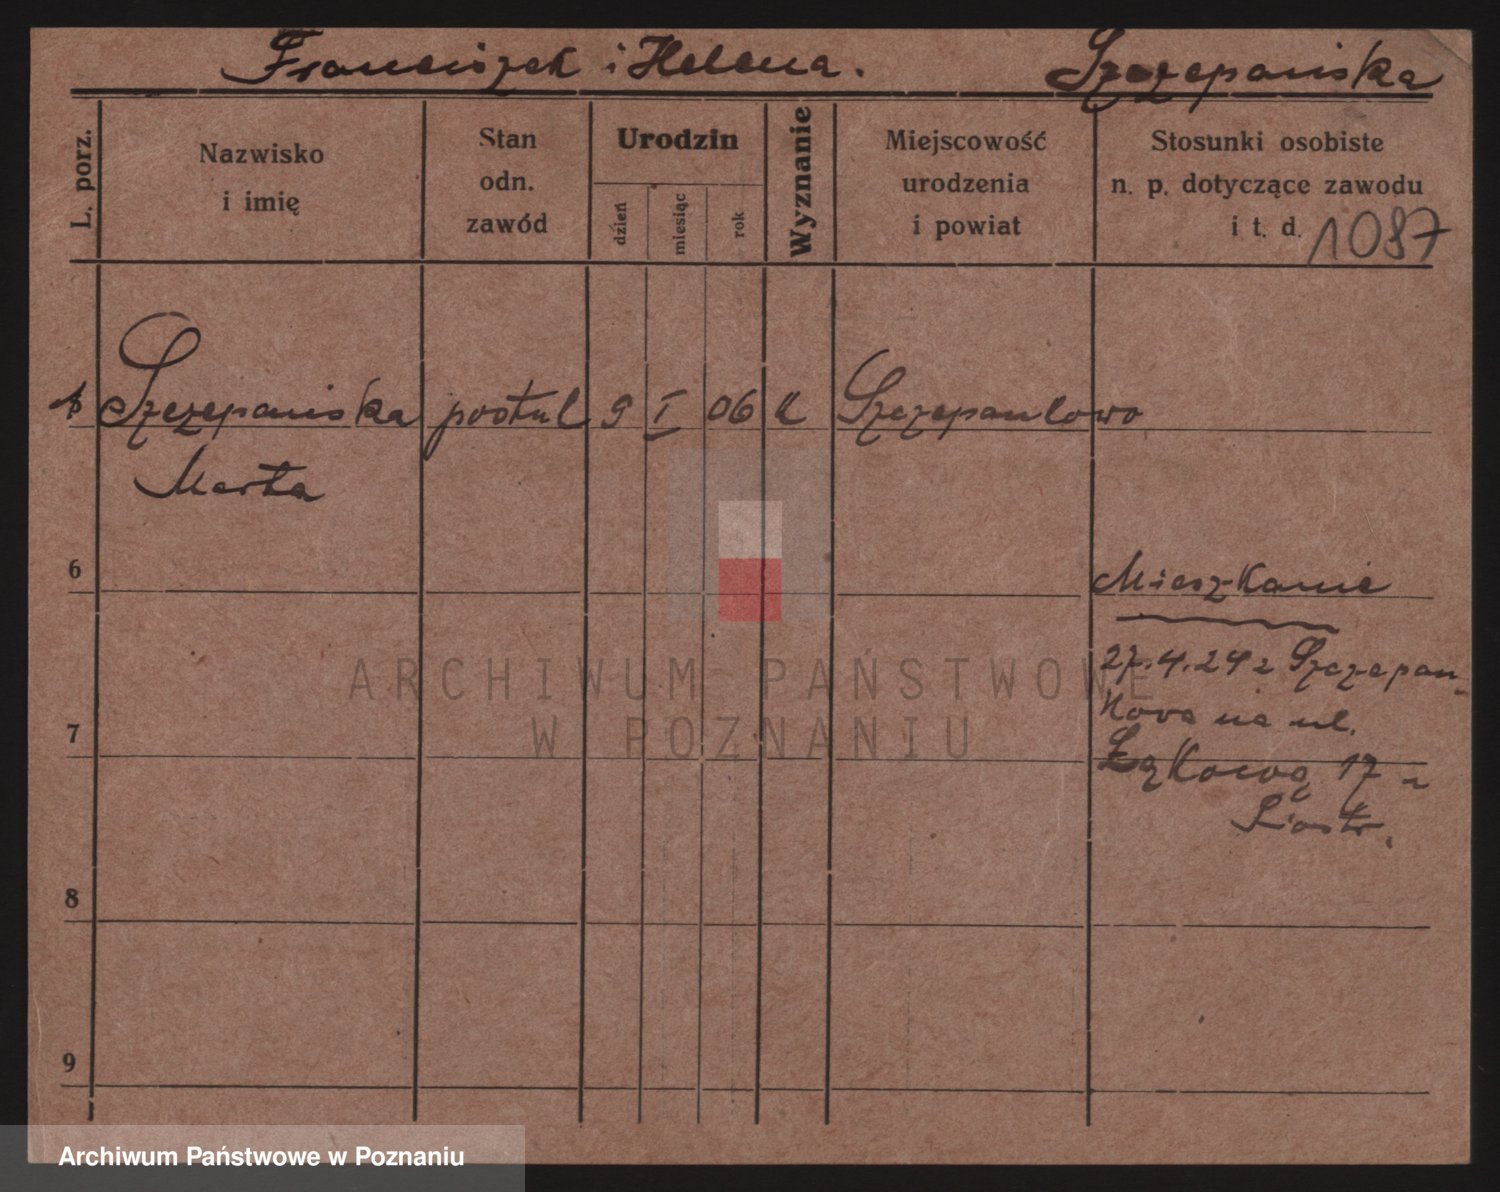 Franciszek i Helena. Szczepańska
L. porz.
Nazwisko
i imię
Stan
odn.
zawód
Urodzin
dzień
miesiąc
rok
Wyznanie
Miejscowość
urodzenia
i powiat
Stosunki osobiste
n. p. dotyczące zawodu
i t. d. 1087
Szczepańska postul 9 I 06 k
Marta
6
Mieszkanie
27.4.24 z Szczepan-
kowa na ul.
7
Łąkową 17 u
8
9
ARCHIWUM PAŃSTWOWE
W POZNANIU
Archiwum Państwowe w Poznaniu